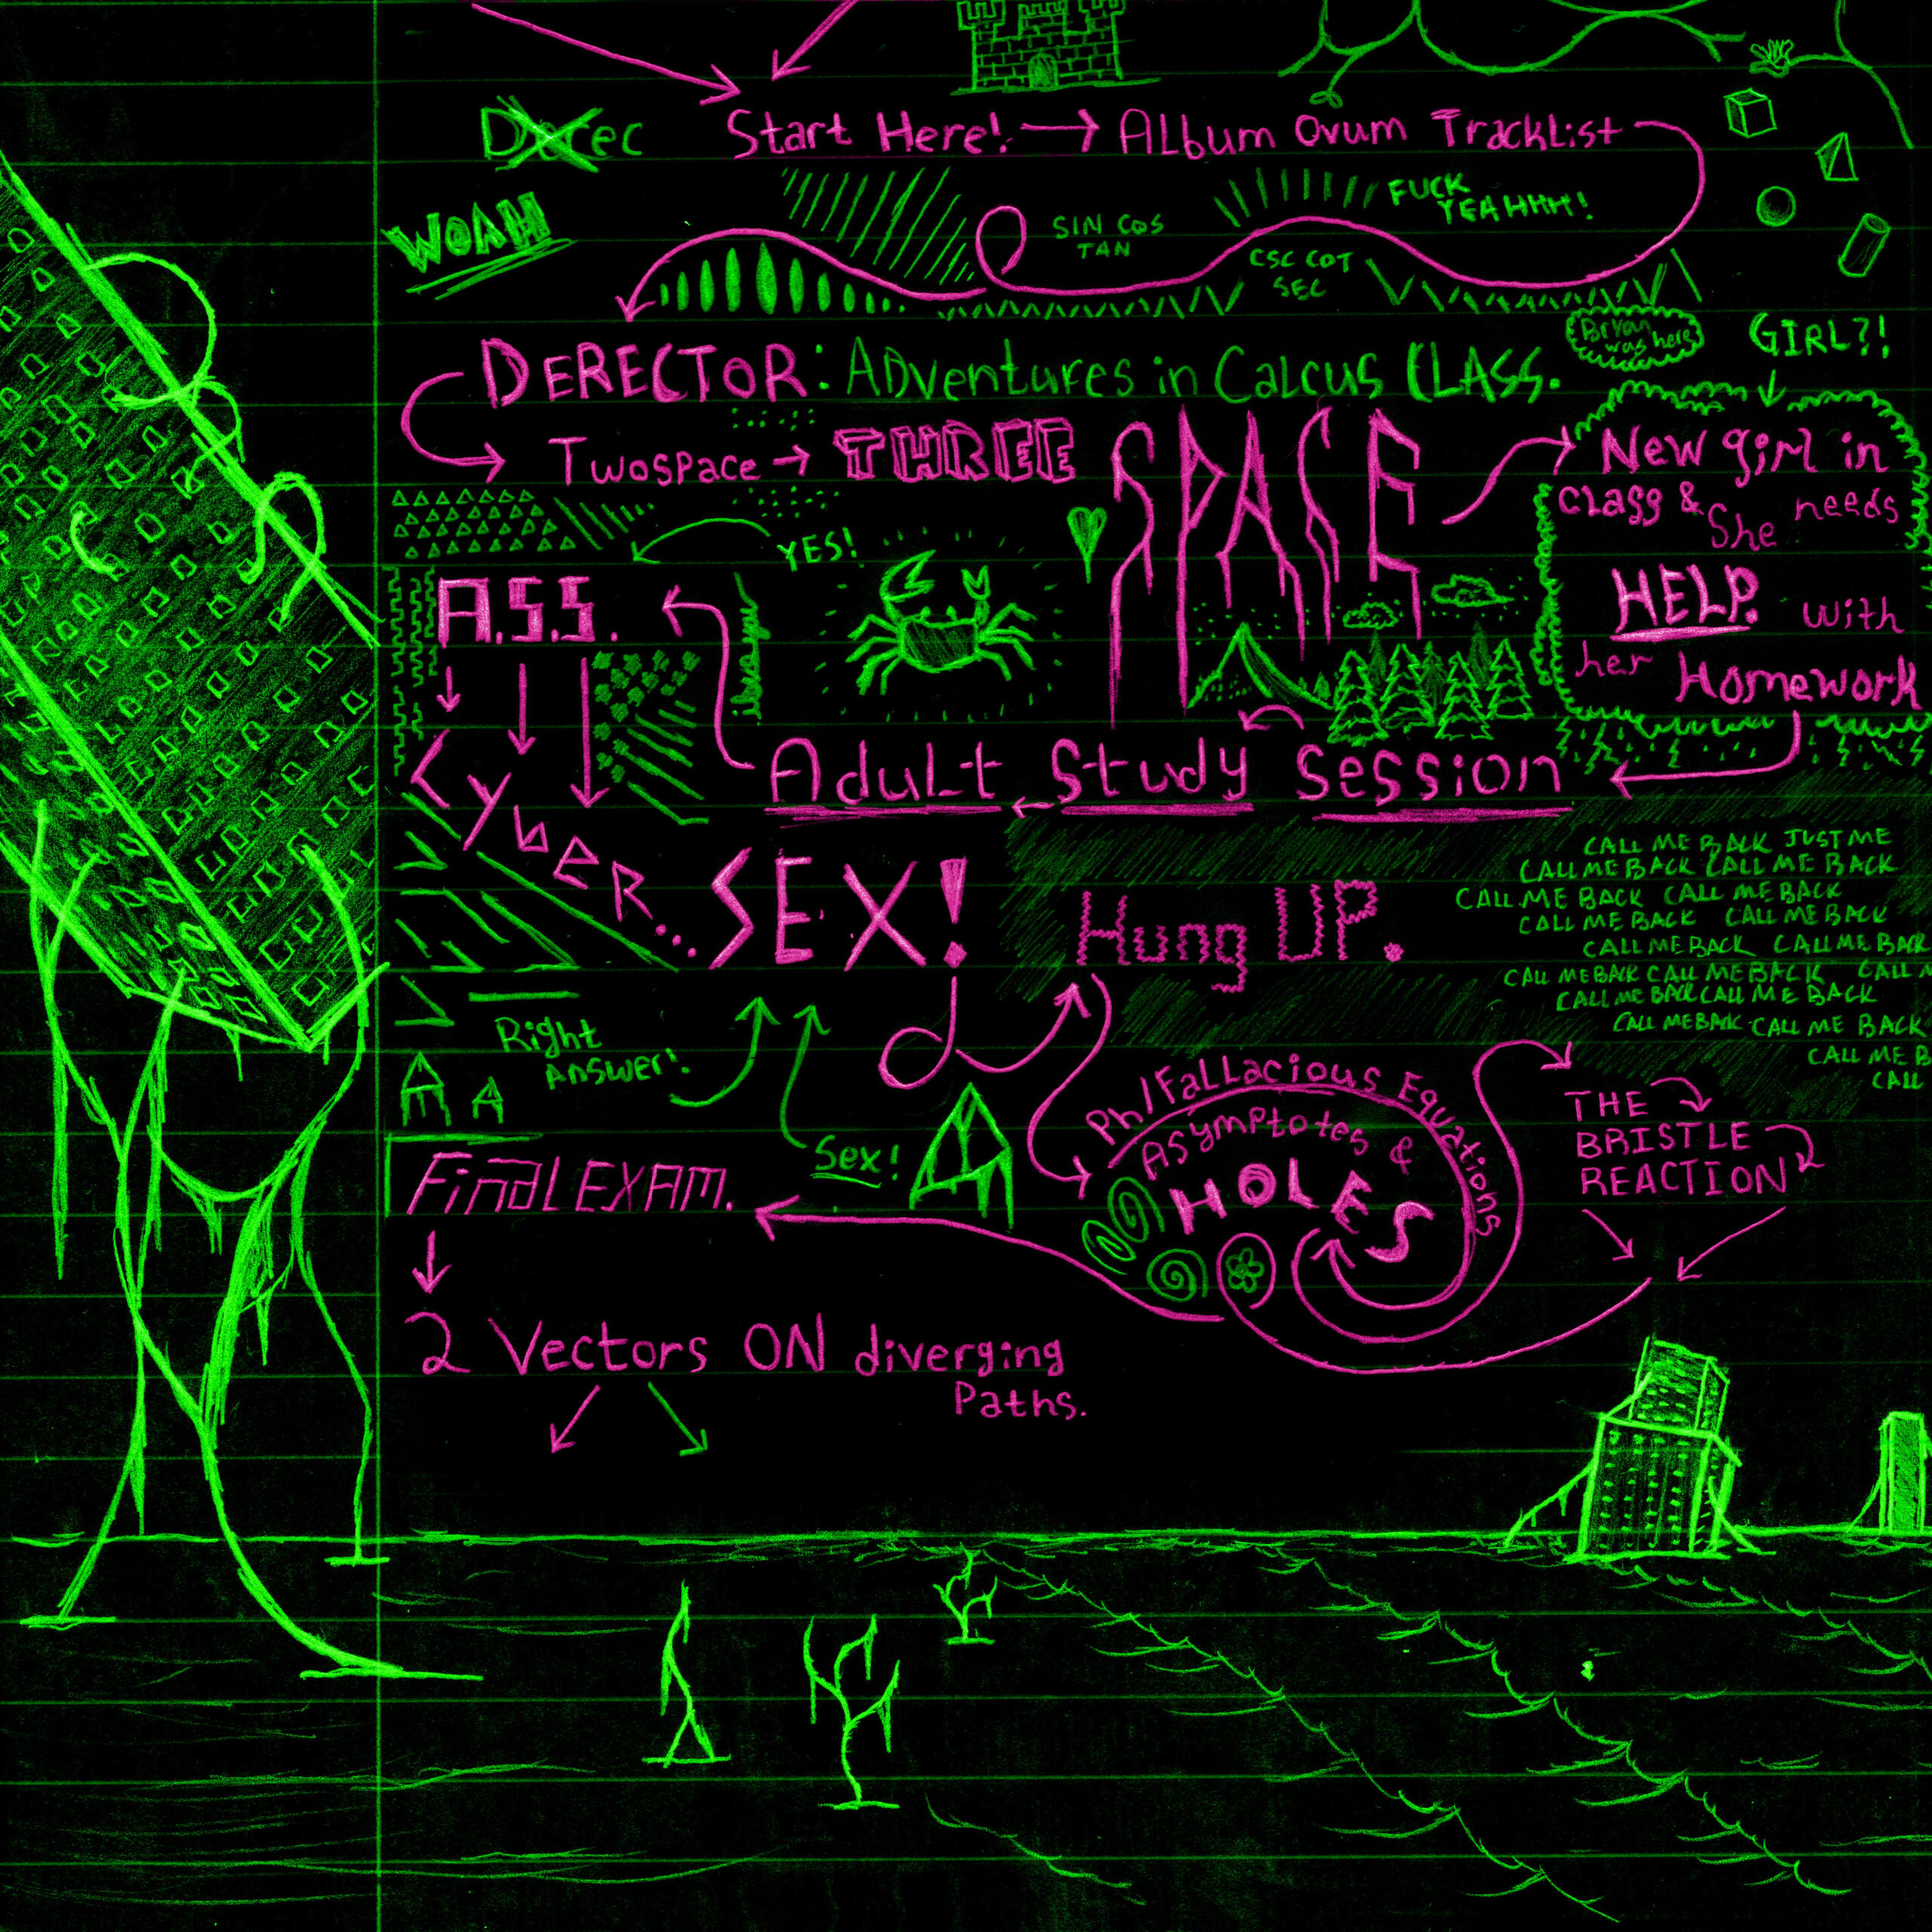 Derec
Start Here! → Album Ovum Tracklist
WOAH
FUCK
YEAHHH!
SIN COS
TAN
CSC COT
SEC
Bryan
was here
GIRL?!
DERECTOR: ADventures in Calcus CLASS.
Twospace → THREE SPACE
New girl in
class & She needs
HELP. with
her Homework
YES!
A.S.S.
Adult ← Study Session
Cyber... SEX!
Hung UP.
CALL ME BACK JUST ME
CALL ME BACK CALL ME BACK
CALL ME BACK CALL ME BACK
CALL ME BACK CALL ME BACK
CALL ME BACK CALL ME BACK
CALL ME BACK CALL ME BACK CALL M
CALL ME BACK CALL ME BACK
CALL ME BACK CALL ME BACK
CALL ME B
CALL
Right
Answer!
Sex!
Ph/Fallacious Equations
Asymptotes &
HOLES
THE
BRISTLE
REACTION
Final EXAM.
2 Vectors ON diverging
Paths.